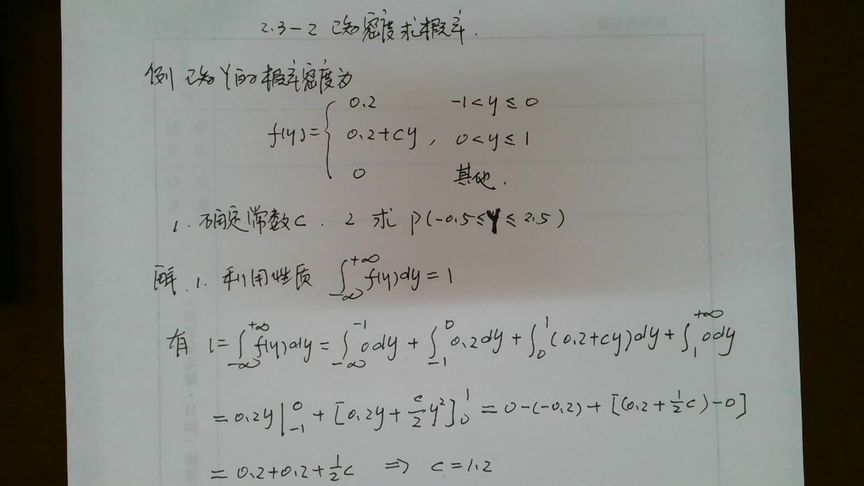 2.3-2 已知密度求概率.
例 已知Y的概率密度为
f(y)={ 0.2 -1<y≤0
0.2+cy, 0<y≤1
0 其他.
1. 确定常数c. 2 求 P(-0.5≤Y≤2.5)
解 1. 利用性质 ∫_{-∞}^{+∞} f(y)dy=1
有 1=∫_{-∞}^{+∞} f(y)dy=∫_{-∞}^{-1} 0dy+∫_{-1}^{0} 0.2dy+∫_{0}^{1} (0.2+cy)dy+∫_{1}^{+∞} 0dy
=0.2y|_{-1}^{0}+[0.2y+\frac{c}{2}y²]_{0}^{1}=0-(-0.2)+[(0.2+\frac{1}{2}c)-0]
=0.2+0.2+\frac{1}{2}c ⇒ c=1.2